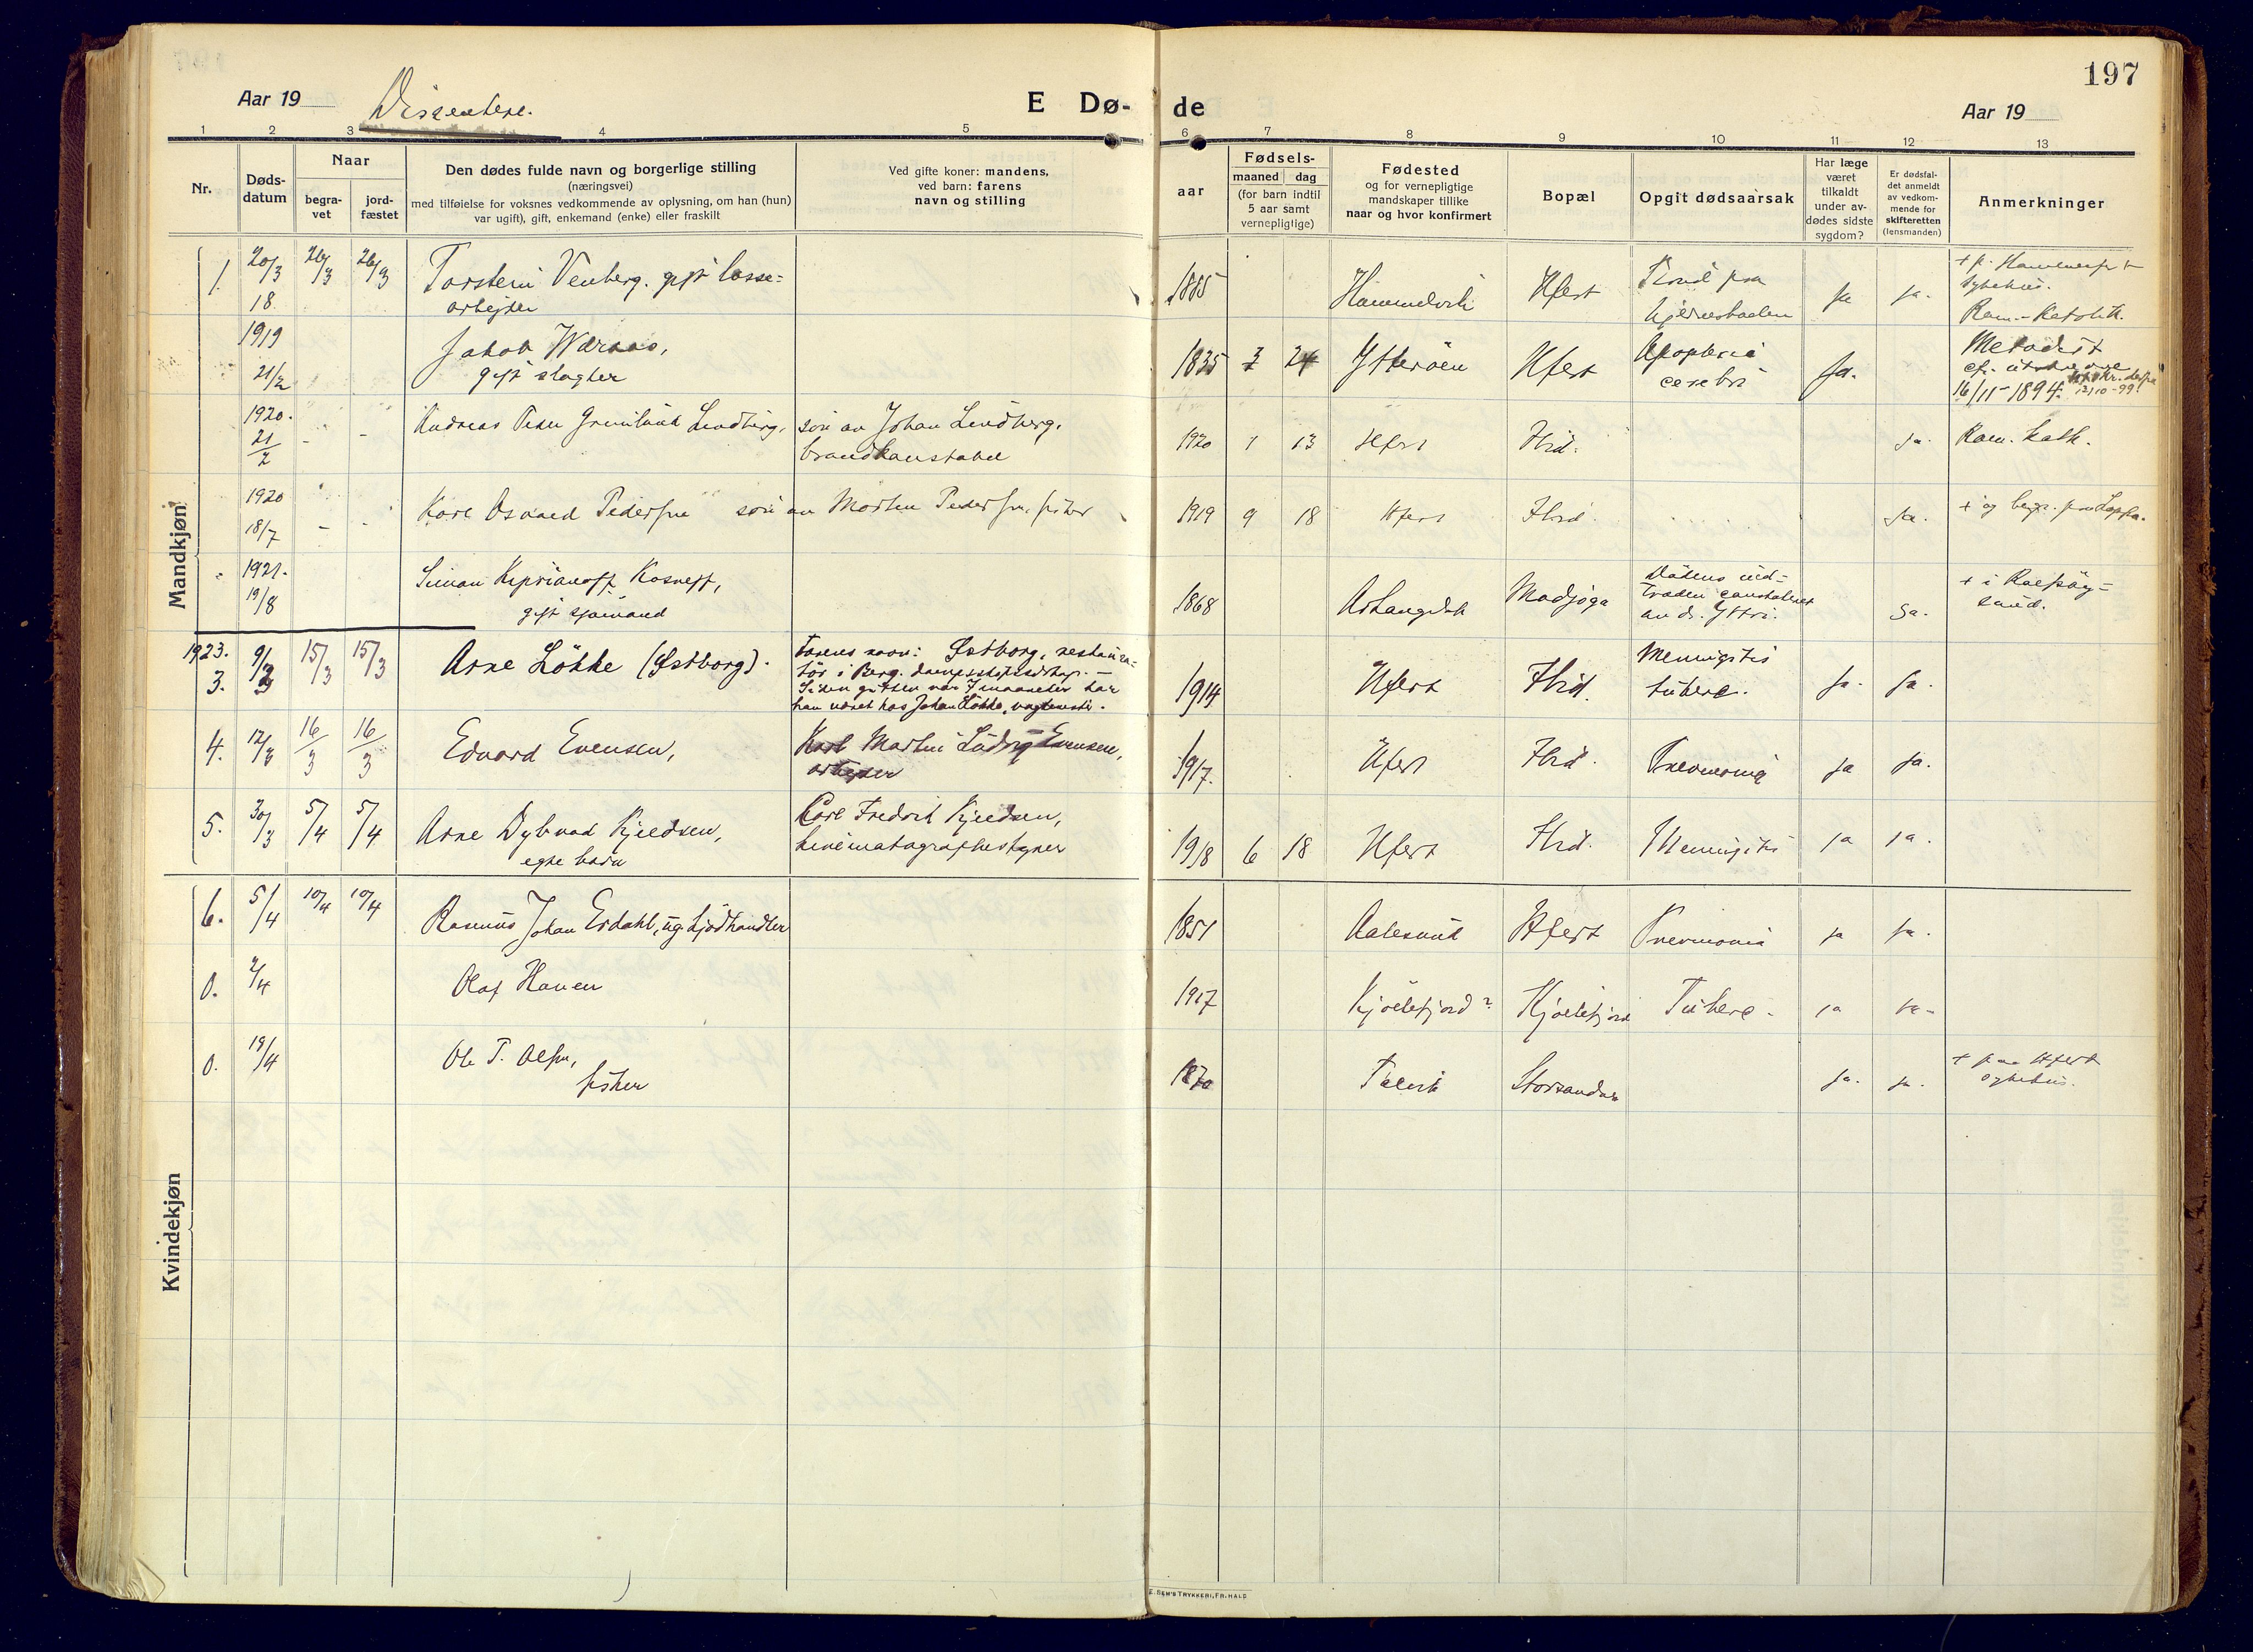 197
Aar 19
Dissentere.
E Dø-
de
Aar 19
1 2 3 4 5 6 7 8 9 10 11 12 13
Nr.
Døds-
datum
Naar
begra-
vet
jord-
fæstet
Den dødes fulde navn og borgerlige stilling
(næringsvei)
med tilføielse for voksnes vedkommende av oplysning, om han (hun)
var ugift), gift, enkemand (enke) eller fraskilt
Ved gifte koner: mandens,
ved barn: farens
navn og stilling
aar
Fødsels-
maaned dag
(for barn indtil
5 aar samt
vernepligtige)
Fødested
og for vernepligtige
mandskaper tillike
naar og hvor konfirmert
Bopæl
Opgit dødsaarsak
Har læge
været
tilkaldt
under av-
dødes sidste
sygdom?
Er dødsfal-
det anmeldt
av vedkom-
mende for
skifteretten
(lensmanden)
Anmerkninger
Mandkjøn
Kvindekjøn
1. 20/3 26/3 26/3 Torstein Venberg. gift losse- 1885 Hfest ja ja.
18. arbeider
sykehus.
Rom.-Katolik.
1919 Jakob 1835 Ytterøen Hfest Apoplexia ja. Metodist
21/2 gift slagter cerebri
16/11 1894.
1920. Andreas Peder Lindberg. søn av Johan Lindberg. 1920 1 13 Hfest Ibid. Ja. Rom. kath.
21/2 - - brandkonstabel
1920 Pedersen søn av Morten Pedersen, fisker 1919 9 18 Hfest Ibid. Ja. + og begr. paa Loppa.
18/7 - -
1921. Simon Kiprianoff 1868 Ja. + i
19/8 gift sjømand sund.
1923.
3. 9/3 15/3 15/3 Arne Løkke (Østborg). Farens navn: Østborg, restaura- 1914 Hfest Ibid. Meningitis ja. ja.
tør i Berg. dampskibsselskap. - tuberc.
Siden gutten var 7 maaneder har
han været hos Johan Løkke,
4. 12/3 16/3 16/3 Edvard Evensen, Karl Martin Ludvig Evensen, 1917. Hfest Ibid. Pneumonia ja ja.
arbeider
5. 30/3 5/4 5/4 Arne Dybvad Kjeldsen, Carl Fredrik Kjeldsen, 1918 6 18 Hfest Ibid. Meningitis ja ja.
egte barn kinematografbestyrer
6. 5/4 10/4 10/4 Rasmus Johan Erdahl, ug. kjødhandler 1851 Aalesund Hfest Pneumonia ja ja.
0. 2/4 Olaf Hansen 1917 Kjøllefjord? Kjøllefjord Tuberc. ja ja.
0. 19/4 Ole T. Olsen, 1870 Talvik Storsandnes ja. ja. + paa Hfest
fisker sykehus.
E. SEM'S TRYKKERI, FR.HALD